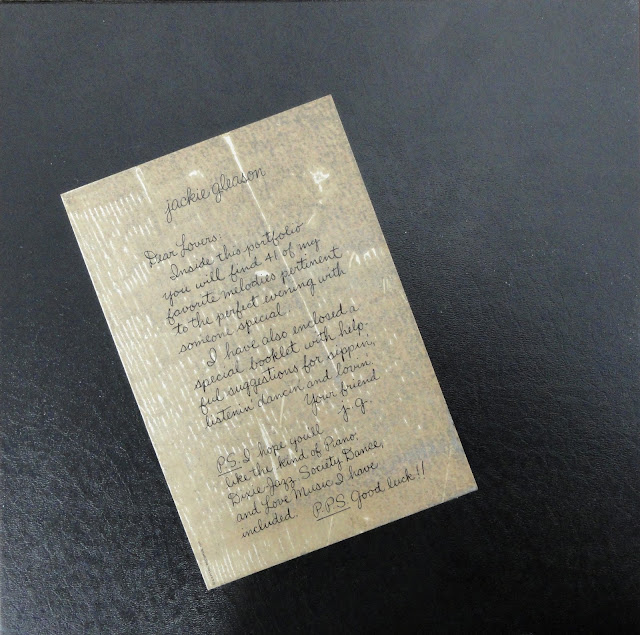 jackie gleason
Dear Lovers:
Inside this portfolio
you will find 41 of my
favorite melodies pertinent
to the perfect evening with
someone special.
I have also enclosed a
special booklet with help-
ful suggestions for sippin,
listenin dancin and lovin.
Your friend
j.g.
P.S. I hope you'll
like the kind of Piano,
Dixie Jazz, Society Dance,
and Love Music I have
included. P.P.S. Good luck!!